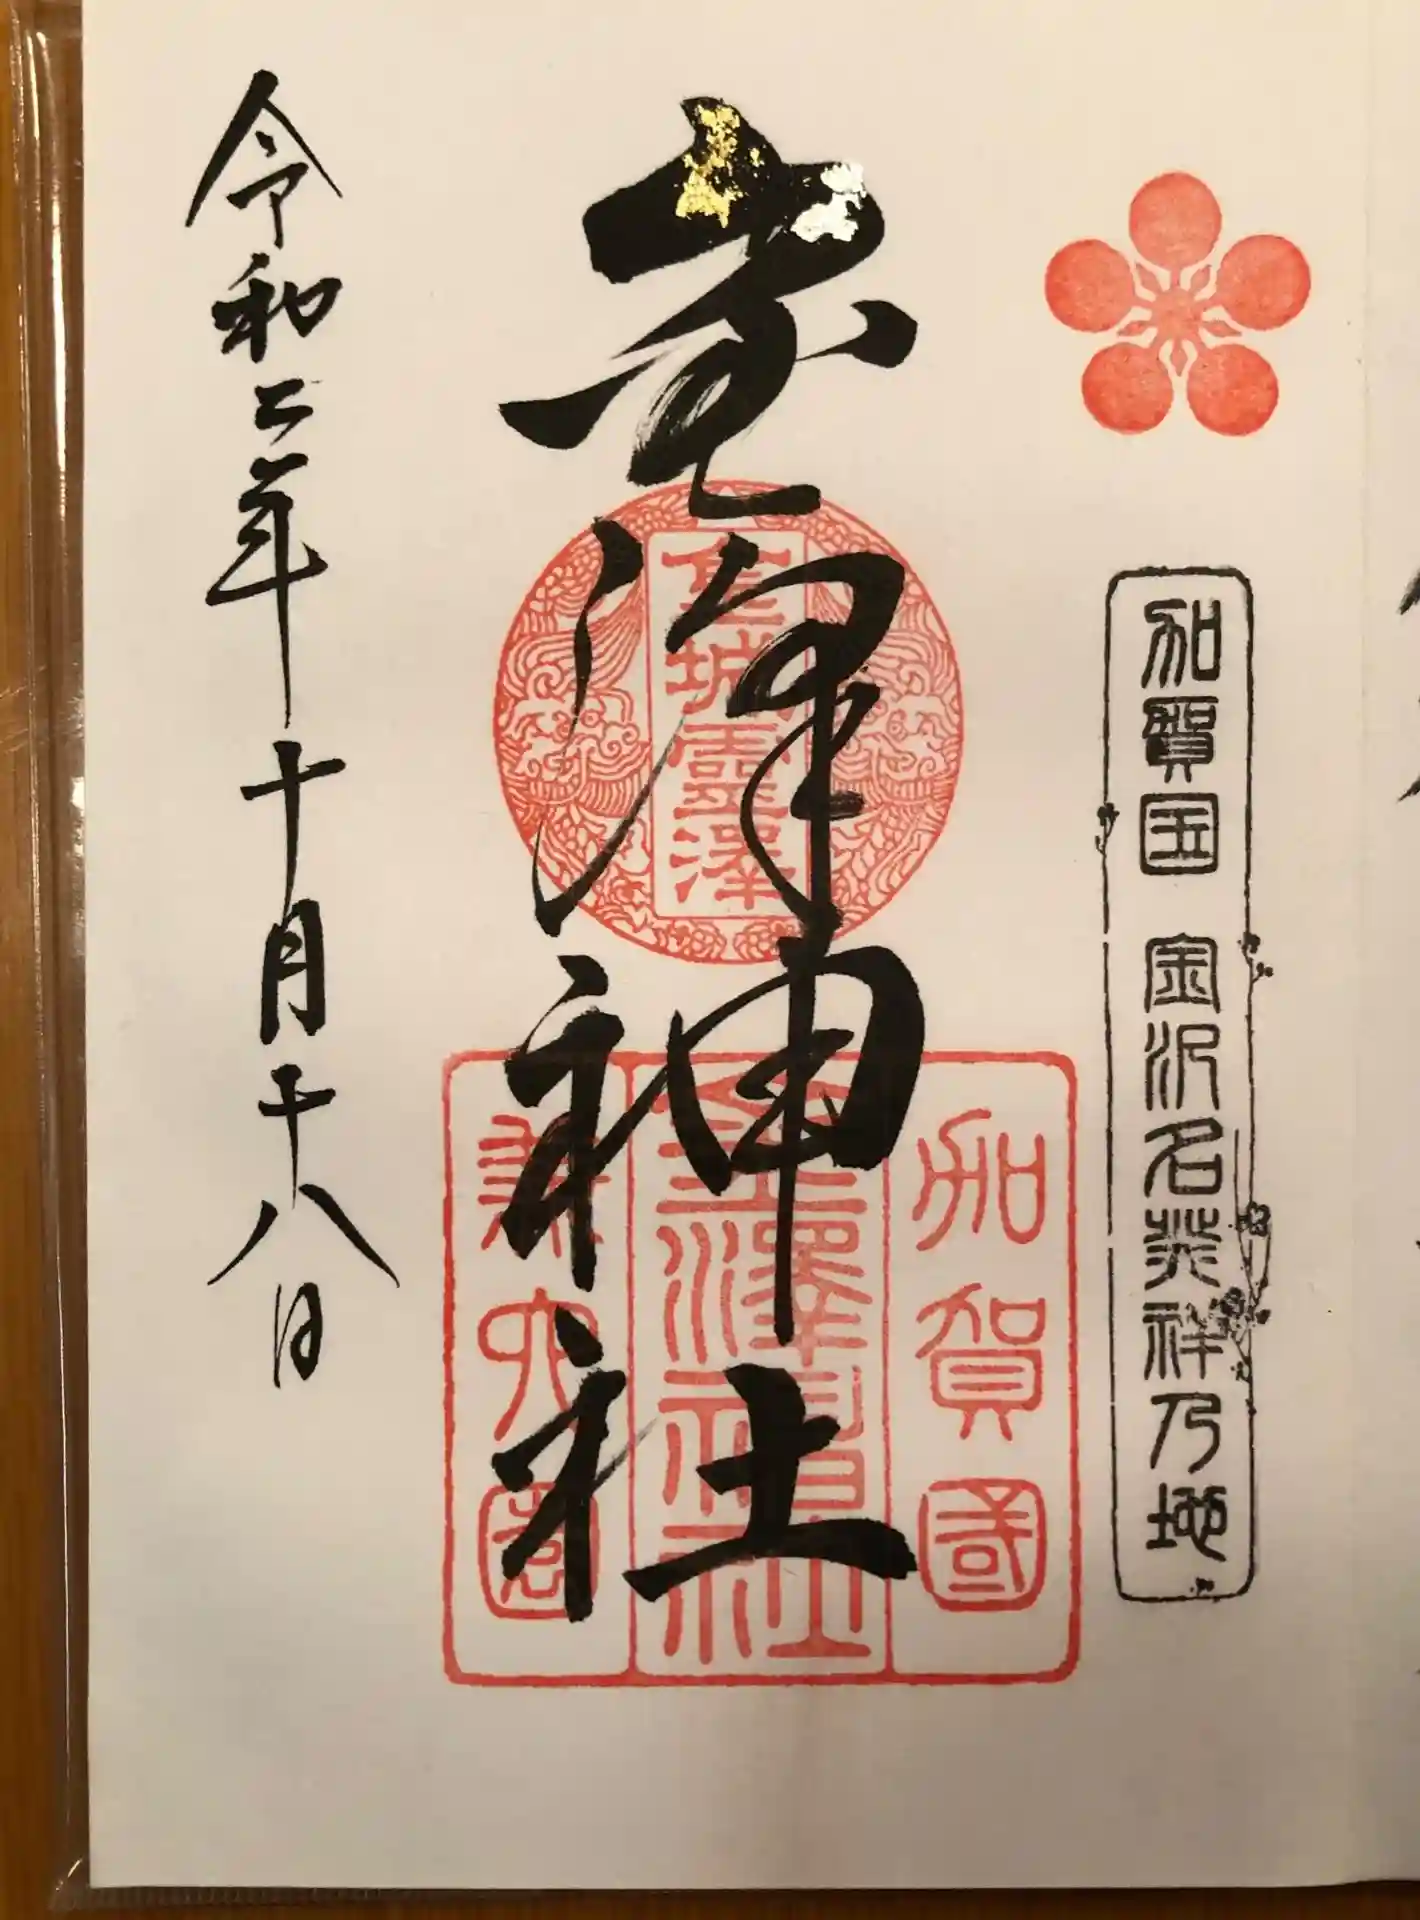 加賀国 金沢名発祥乃地
金澤神社
金城霊澤
加賀國
金澤神社
兼六園
令和二年十月十八日